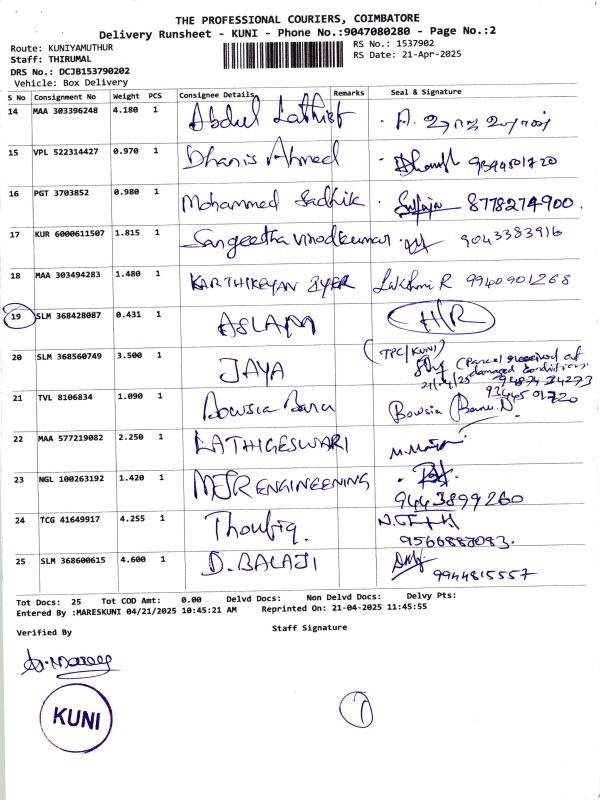 THE PROFESSIONAL COURIERS, COIMBATORE
Delivery Runsheet - KUNI - Phone No.:9047080280 - Page No.:2
Route: KUNIYAMUTHUR
RS No.: 1537902
Staff: THIRUMAL
RS Date: 21-Apr-2025
DRS No.: DCJB153790202
Vehicle: Box Delivery
S No Consignment No Weight PCS Consignee Details Remarks Seal & Signature
14 MAA 303396248 4.180 1 Abdul Lathief
15 VPL 522314427 0.970 1 Dhanis Ahmed 9344501720
16 PGT 3703852 0.980 1 Mohammed Sadhik 8778274900.
17 KUR 6000611507 1.815 1 Sangeetha vinodkumar 9043383916
18 MAA 303494283 1.480 1 KARTHIKEYAN IYER Lakshmi R 9940901268
19 SLM 368428087 0.431 1 ASLAM H/R
20 SLM 368560749 3.500 1 JAYA (TPC/KUNI)
(Parcel received at
damaged condition)
21/04/25
21 TVL 8106834 1.090 1 Bowsia Banu Bowsia Banu.N
22 MAA 577219082 2.250 1 LATHIGESWARI
23 NGL 100263192 1.420 1 MJR ENGINEENING
9443899260
24 TCG 41649917 4.255 1 Thoufiq.
9566887083.
25 SLM 368600615 4.600 1 D.BALAJI
9944815557
Tot Docs: 25 Tot COD Amt: 0.00 Delvd Docs: Non Delvd Docs: Delvy Pts:
Entered By :MARESKUNI 04/21/2025 10:45:21 AM Reprinted On: 21-04-2025 11:45:55
Verified By
Staff Signature
KUNI
1